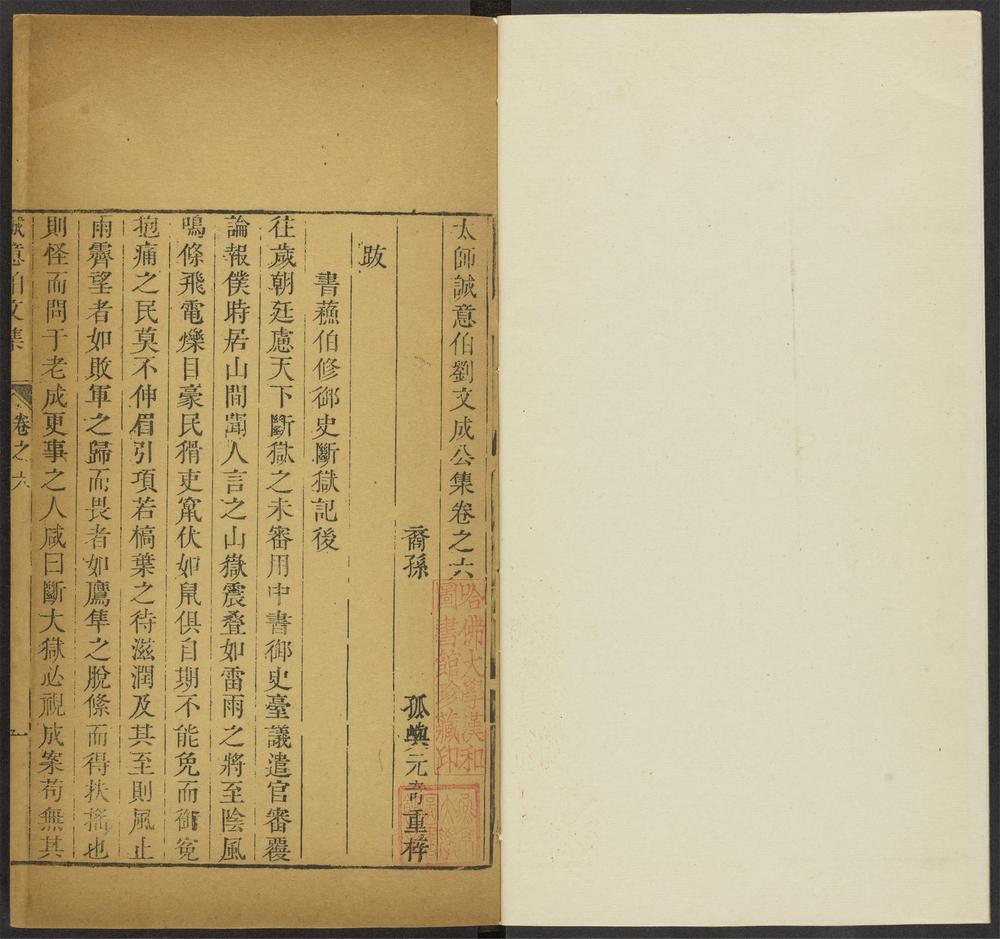 太師誠意伯劉文成公集卷之六
裔孫 孤嶼元奇重梓
跋
書蘓伯修御史斷獄記後
往歲朝廷慮天下斷獄之未審用中書御史臺議遣官審覆
論報僕時居山間聞人言之山嶽震叠如雷雨之將至陰風
鳴條飛電爍目豪民猾吏竄伏如鼠俱自期不能免而銜寃
抱痛之民莫不伸眉引項若槁葉之待滋潤及其至則風止
雨霽望者如敗軍之歸而畏者如鷹隼之脫絛而得扶搖也
則怪而問于老成更事之人咸曰斷大獄必視成案苟無其
誠意伯文集
卷之六
一
哈佛大學漢和
圖書館珍藏印